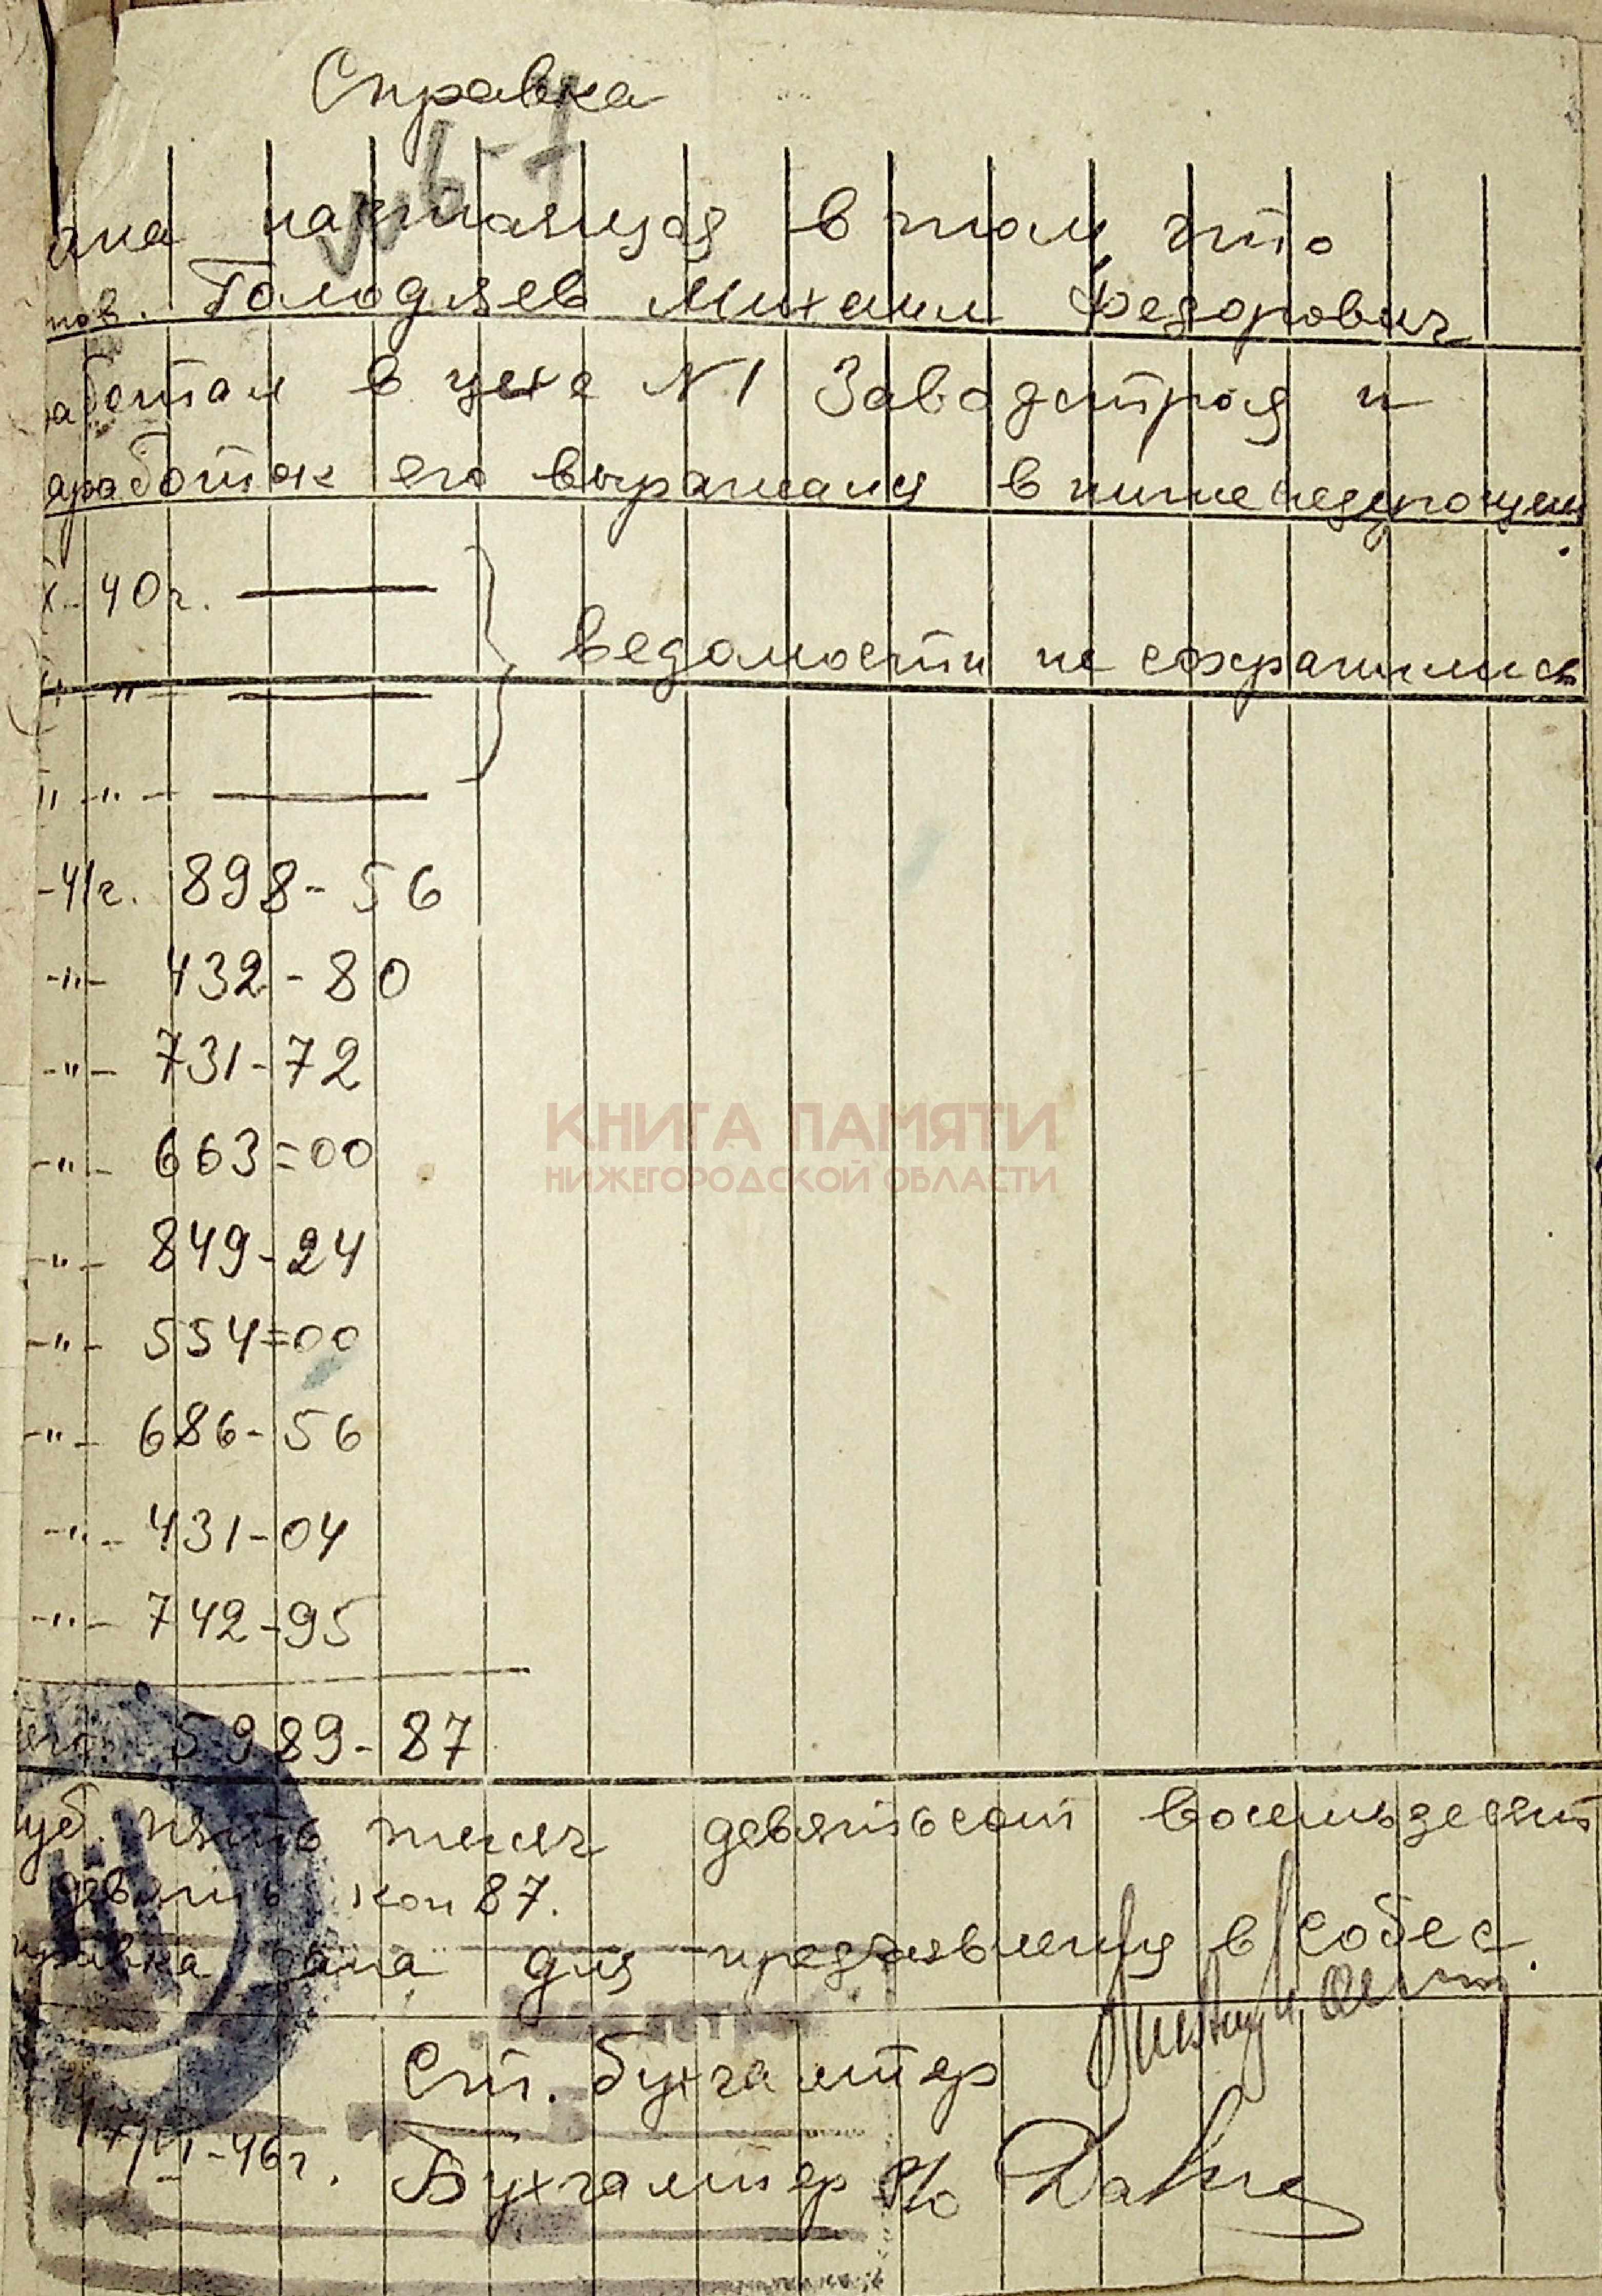 Справка
№ 6-7
дна настоящая в том, что
тов. Голодяев Михаил Федорович
аботал в цехе N 1 Заводстроя и
аработок его выражался в нижеследующем
X-40г. —
-"- —
-"- —
ведомости не сохранились
-41г. 898-56
-"- 432-80
-"- 731-72
-"- 663=00
-"- 849-24
-"- 554=00
-"- 686-56
-"- 431-04
-"- 742-95
его 5989-87
уб. пять тысяч девятьсот восемьдесят
девять коп 87.
правка дана для предъявления в собес.
Ст. бухгалтер
-46г. Бухгалтер р/о
КНИГА ПАМЯТИ
НИЖЕГОРОДСКОЙ ОБЛАСТИ